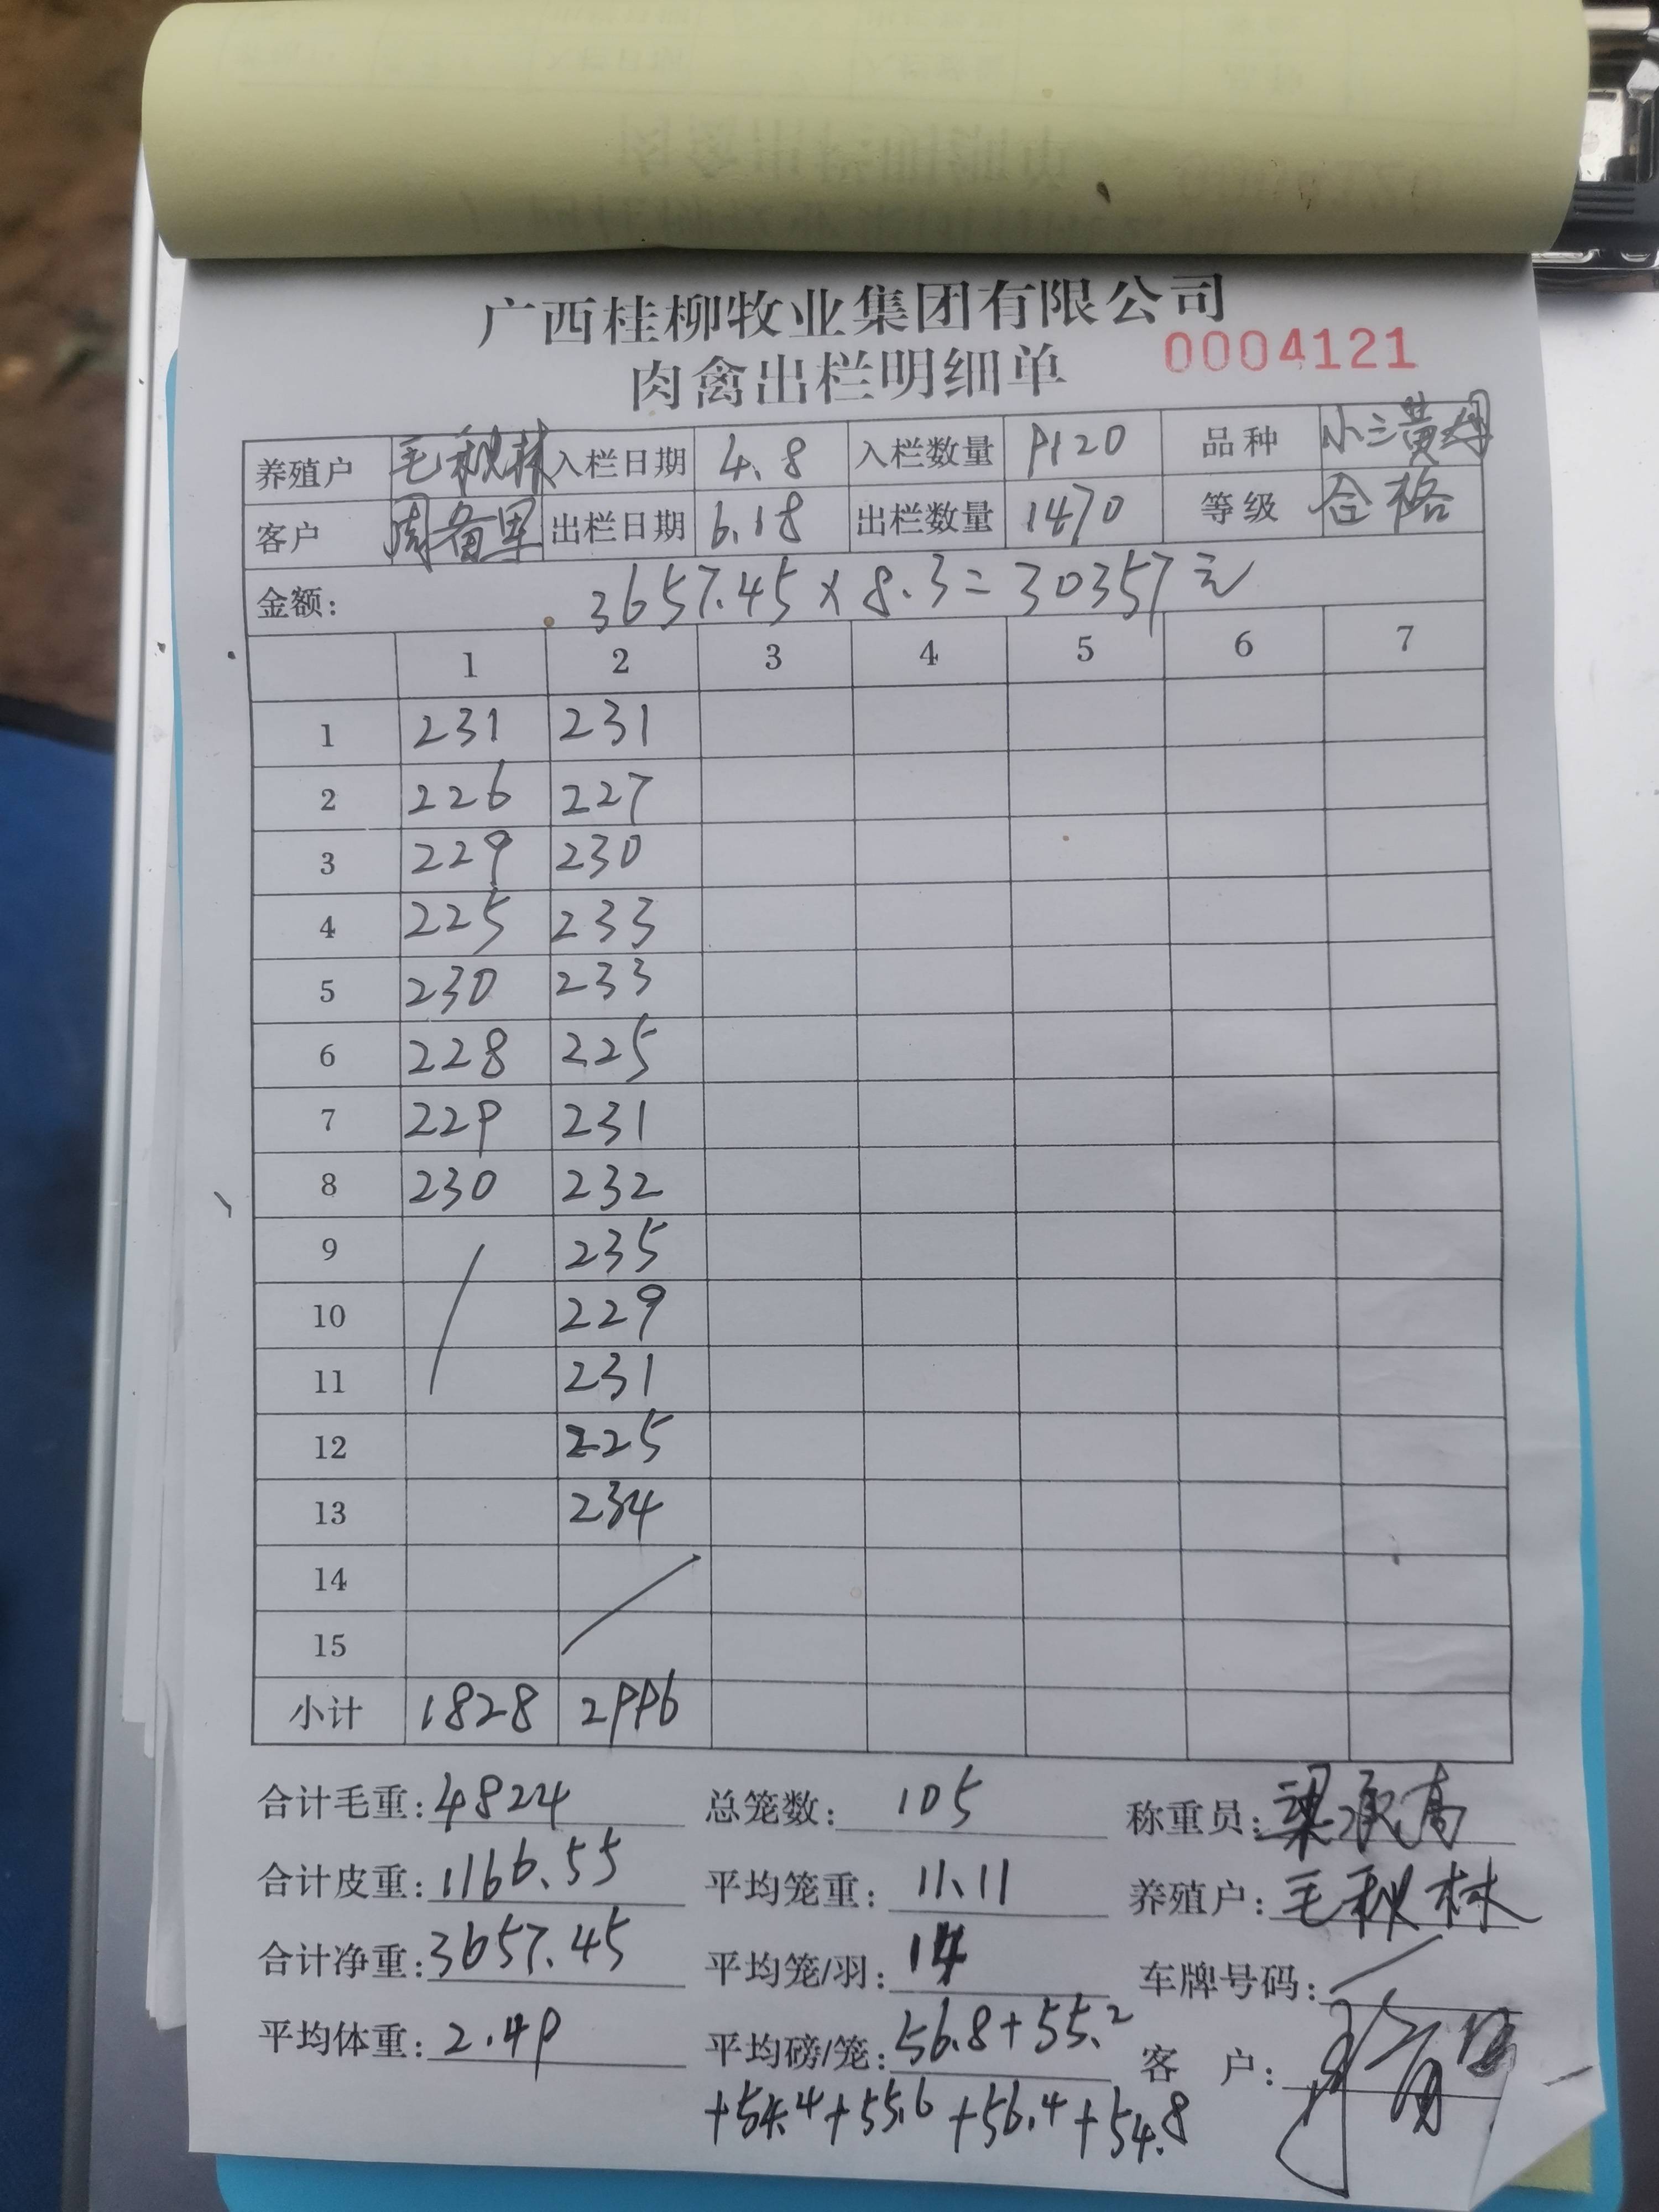 广西桂柳牧业集团有限公司
肉禽出栏明细单 0004121
养殖户 毛秋林 入栏日期 4.8 入栏数量 9120 品种 小三黄母
客户 周备里 出栏日期 6.18 出栏数量 1470 等级 合格
金额: 3657.45×8.3=30357元
1 2 3 4 5 6 7
1 231 231
2 226 227
3 229 230
4 225 233
5 230 233
6 228 225
7 229 231
8 230 232
9 235
10 229
11 231
12 225
13 234
14
15
小计 1828 2996
合计毛重: 4824 总笼数: 105 称重员: 梁承高
合计皮重: 1166.55 平均笼重: 11.11 养殖户: 毛秋林
合计净重: 3657.45 平均笼/羽: 14 车牌号码:
平均体重: 2.49 平均磅/笼: 56.8+55.2 客户:
+54.4+55.6+56.4+54.8